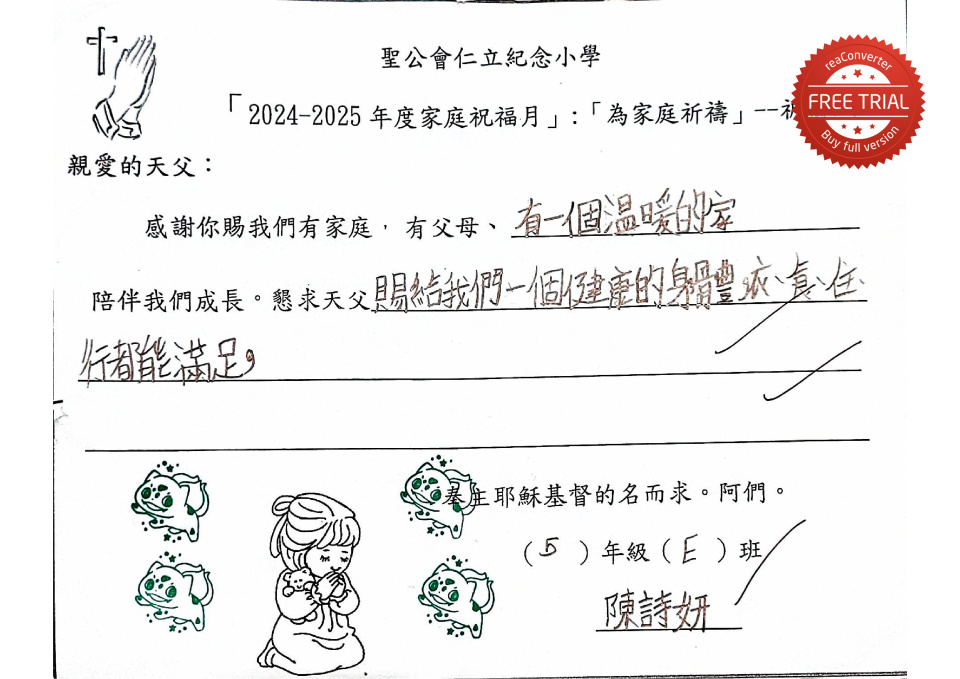 聖公會仁立紀念小學
「2024-2025 年度家庭祝福月」:「為家庭祈禱」--祝
親愛的天父：
感謝你賜我們有家庭，有父母、有一個溫暖的家
陪伴我們成長。懇求天父賜給我們一個健康的身體豐衣、食、住、
行都能滿足,
奉主耶穌基督的名而求。阿們。
（5）年級（E）班
陳詩妍
reaConverter
FREE TRIAL
Buy full version